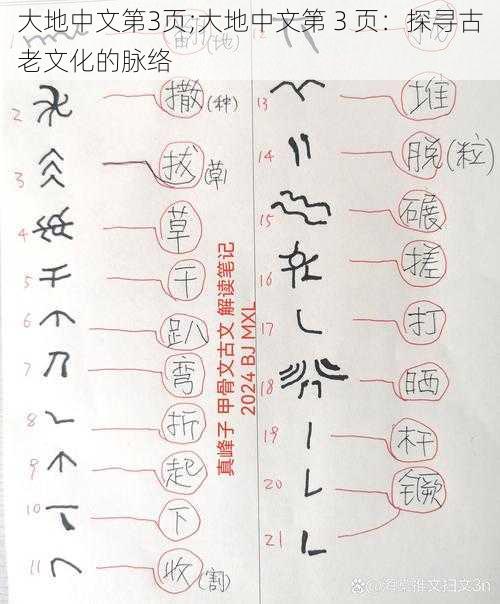 大地中文第3页;大地中文第 3 页：探寻古
老文化的脉络
1 割(地)
2 撒(种)
3 拔(草)
4 草
5 干
6 趴
7 弯
8 折
9 起
10 下
11 收(割)
真峰子 甲骨文古文 解读笔记
2024 BJ MXL
12
13 堆
14 脱(粒)
15 碾
16 搓
17 打
18 晒
19 杆
20 镢
21
@海棠推文扫文3n